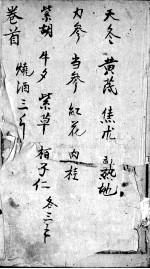 天冬 黄茂 焦朮 熟地
力参 当参 紅花 肉桂
柴胡 牛夕 紫草 柏子仁 各三个
燒酒三斤
卷首